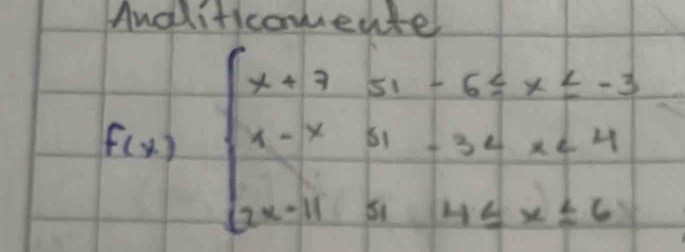 Analíticamente
x + 7 si - 6 ≤ x ≤ -3
f(x) x - x si - 3 < x < 4
2x - 11 si 4 ≤ x ≤ 6